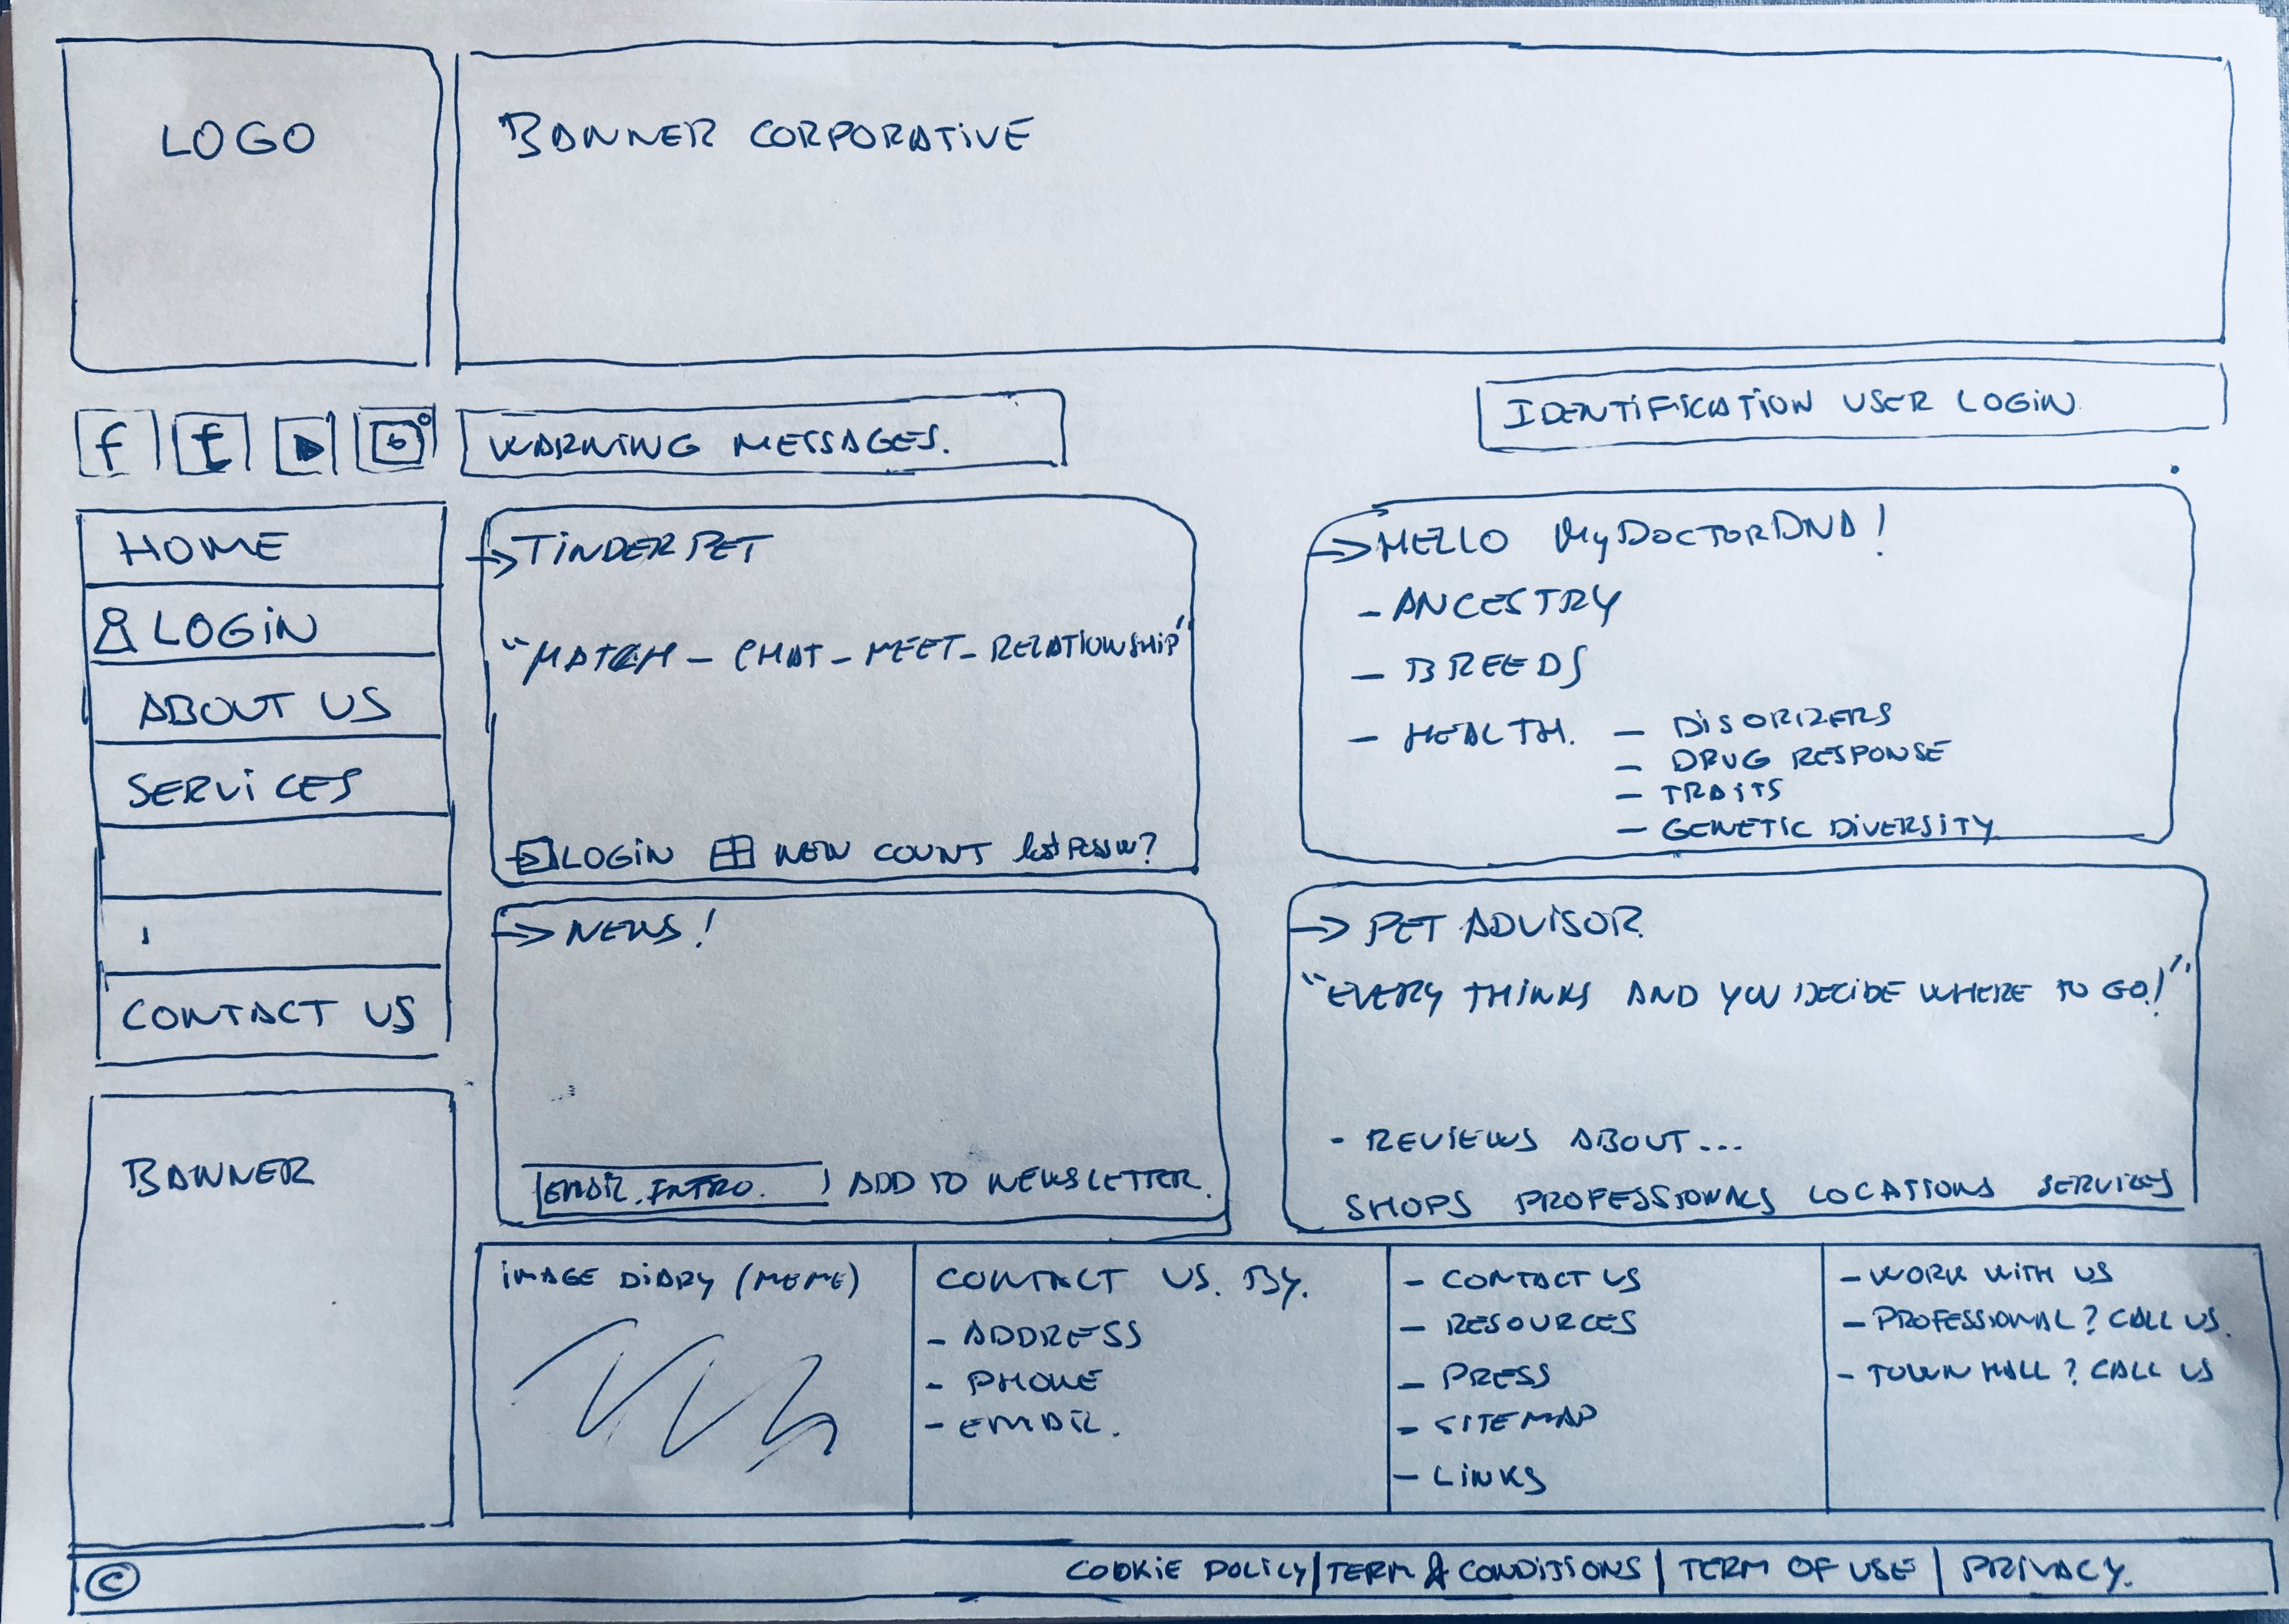 LOGO
BANNER CORPORATIVE
f t
WARNING MESSAGES.
IDENTIFICATION USER LOGIN
HOME
LOGIN
ABOUT US
SERVICES
CONTACT US
BANNER
→TINDERPET
"MATCH - CHAT - MEET - RELATIONSHIP"
LOGIN NEW COUNT lost passw?
→HELLO MyDoctorDNA!
- ANCESTRY
- BREEDS
- HEALTH. - DISORDERS
- DRUG RESPONSE
- TRAITS
- GENETIC DIVERSITY
→ NEWS!
EMAIL INTRO. ADD TO NEWSLETTER.
→ PET ADVISOR
"EVERY THINKS AND YOU DECIDE WHERE TO GO!"
- REVIEWS ABOUT...
SHOPS PROFESSIONALS LOCATIONS SERVICES
IMAGE DIARY (MEME)
CONTACT US. BY.
- ADDRESS
- PHONE
- EMAIL.
- CONTACT US
- RESOURCES
- PRESS
- SITEMAP
- LINKS
- WORK WITH US
- PROFESSIONAL? CALL US.
- TOWN HALL? CALL US
© COOKIE POLICY | TERM & CONDITIONS | TERM OF USE | PRIVACY.